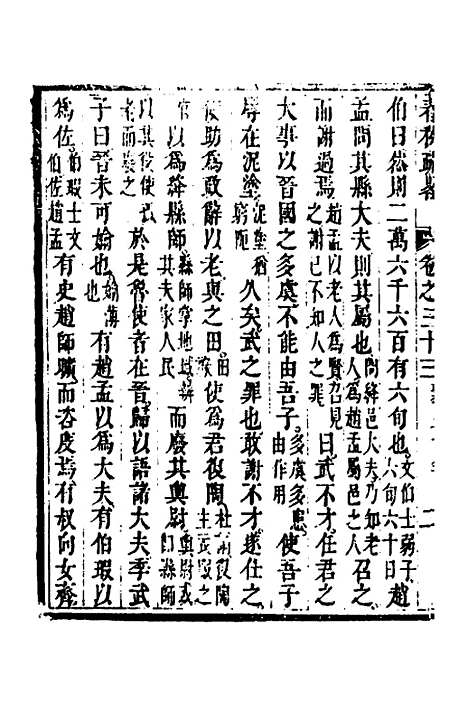 春秋疏畧 卷之三十三 二
伯曰然則二萬六千六百有六旬也文伯士弱子六旬六十日趙
孟問其縣大夫則其屬也問絳邑大夫乃知老人為趙孟屬邑之人召之
而謝過焉趙孟以老人為賢召見之謝已不知人之罪曰武不任君之
大事以晉國之多虞不能由吾子多虞多患由作用使吾子
辱在泥塗泥塗猶窮阨久矣武之罪也敢謝不才遂仕之
使助為政辭以老與之田使為君復陶杜謂復陶主衣服之
官以為絳縣師縣師掌地域辨其夫家人民而廢其輿尉輿尉或即縣師
以其役使老而廢之於是魯使者在晉歸以語諸大夫季武
子曰晉未可媮也媮薄也有趙孟以為大夫有伯瑕以
為佐伯瑕士文伯佐趙孟有史趙師曠而咨度焉有叔向女齊